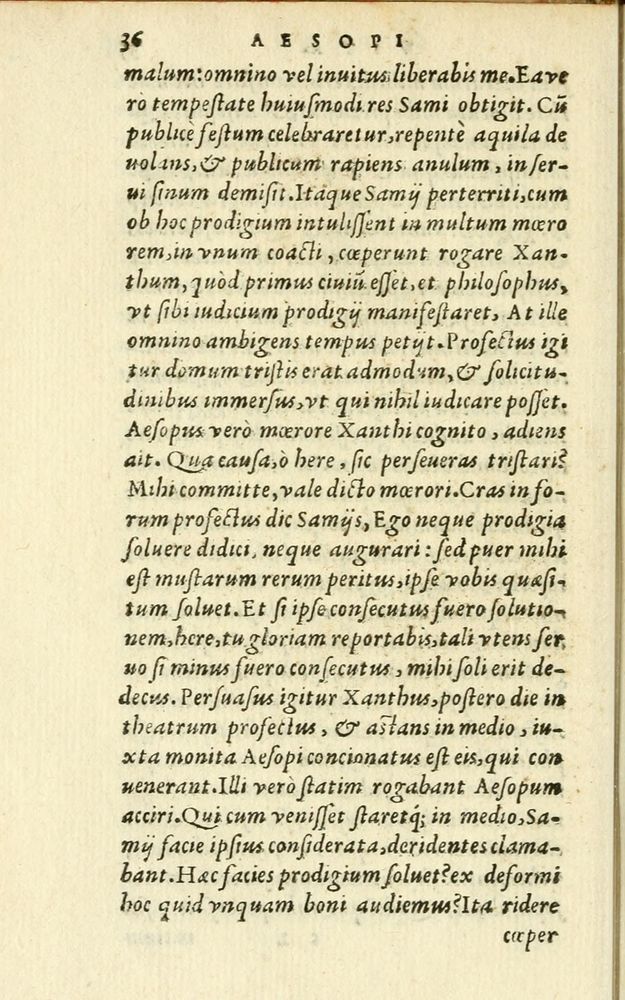 36 AESOPI
malum: omnino vel inuitus liberabis me. Ea ve
ro tempeſtate huiuſmodi res Sami obtigit. Cū
publicè feſtum celebraretur, repentè aquila de
uolans, & publicum rapiens anulum, in ſer-
ui ſinum demiſit. Itaque Samij perterriti, cum
ob hoc prodigium intuliſſent in multum mœro
rem, in vnum coacti, cœperunt rogare Xan-
thum, quòd primus ciuiū eſſet, et philoſophus,
vt ſibi iudicium prodigij manifeſtaret, At ille
omnino ambigens tempus petijt. Profectus igi
tur domum triſtis erat admodum, & ſolicitu-
dinibus immerſus, vt qui nihil iudicare poſſet.
Aeſopus verò mœrore Xanthi cognito, adiens
ait. Qua cauſa, ò here, ſic perſeueras triſtari?
Mihi committe, vale dicto mœrori. Cras in fo-
rum profectus dic Samijs, Ego neque prodigia
ſoluere didici, neque augurari: ſed puer mihi
eſt muſtarum rerum peritus, ipſe vobis quæſi-
tum ſoluet. Et ſi ipſe conſecutus fuero ſolutio-
nem, here, tu gloriam reportabis, tali vtens ſer
uo ſi minus fuero conſecutus, mihi ſoli erit de-
decus. Perſuaſus igitur Xanthus, poſtero die in
theatrum profectus, & aſtans in medio, iu-
xta monita Aeſopi concionatus eſt eis, qui con
uenerant. Illi verò ſtatim rogabant Aeſopum
acciri. Qui cum veniſſet ſtaretq́; in medio, Sa-
mij facie ipſius conſiderata, deridentes clama-
bant. Hæc facies prodigium ſoluet? ex deformi
hoc quid vnquam boni audiemus? Ita ridere
cœper